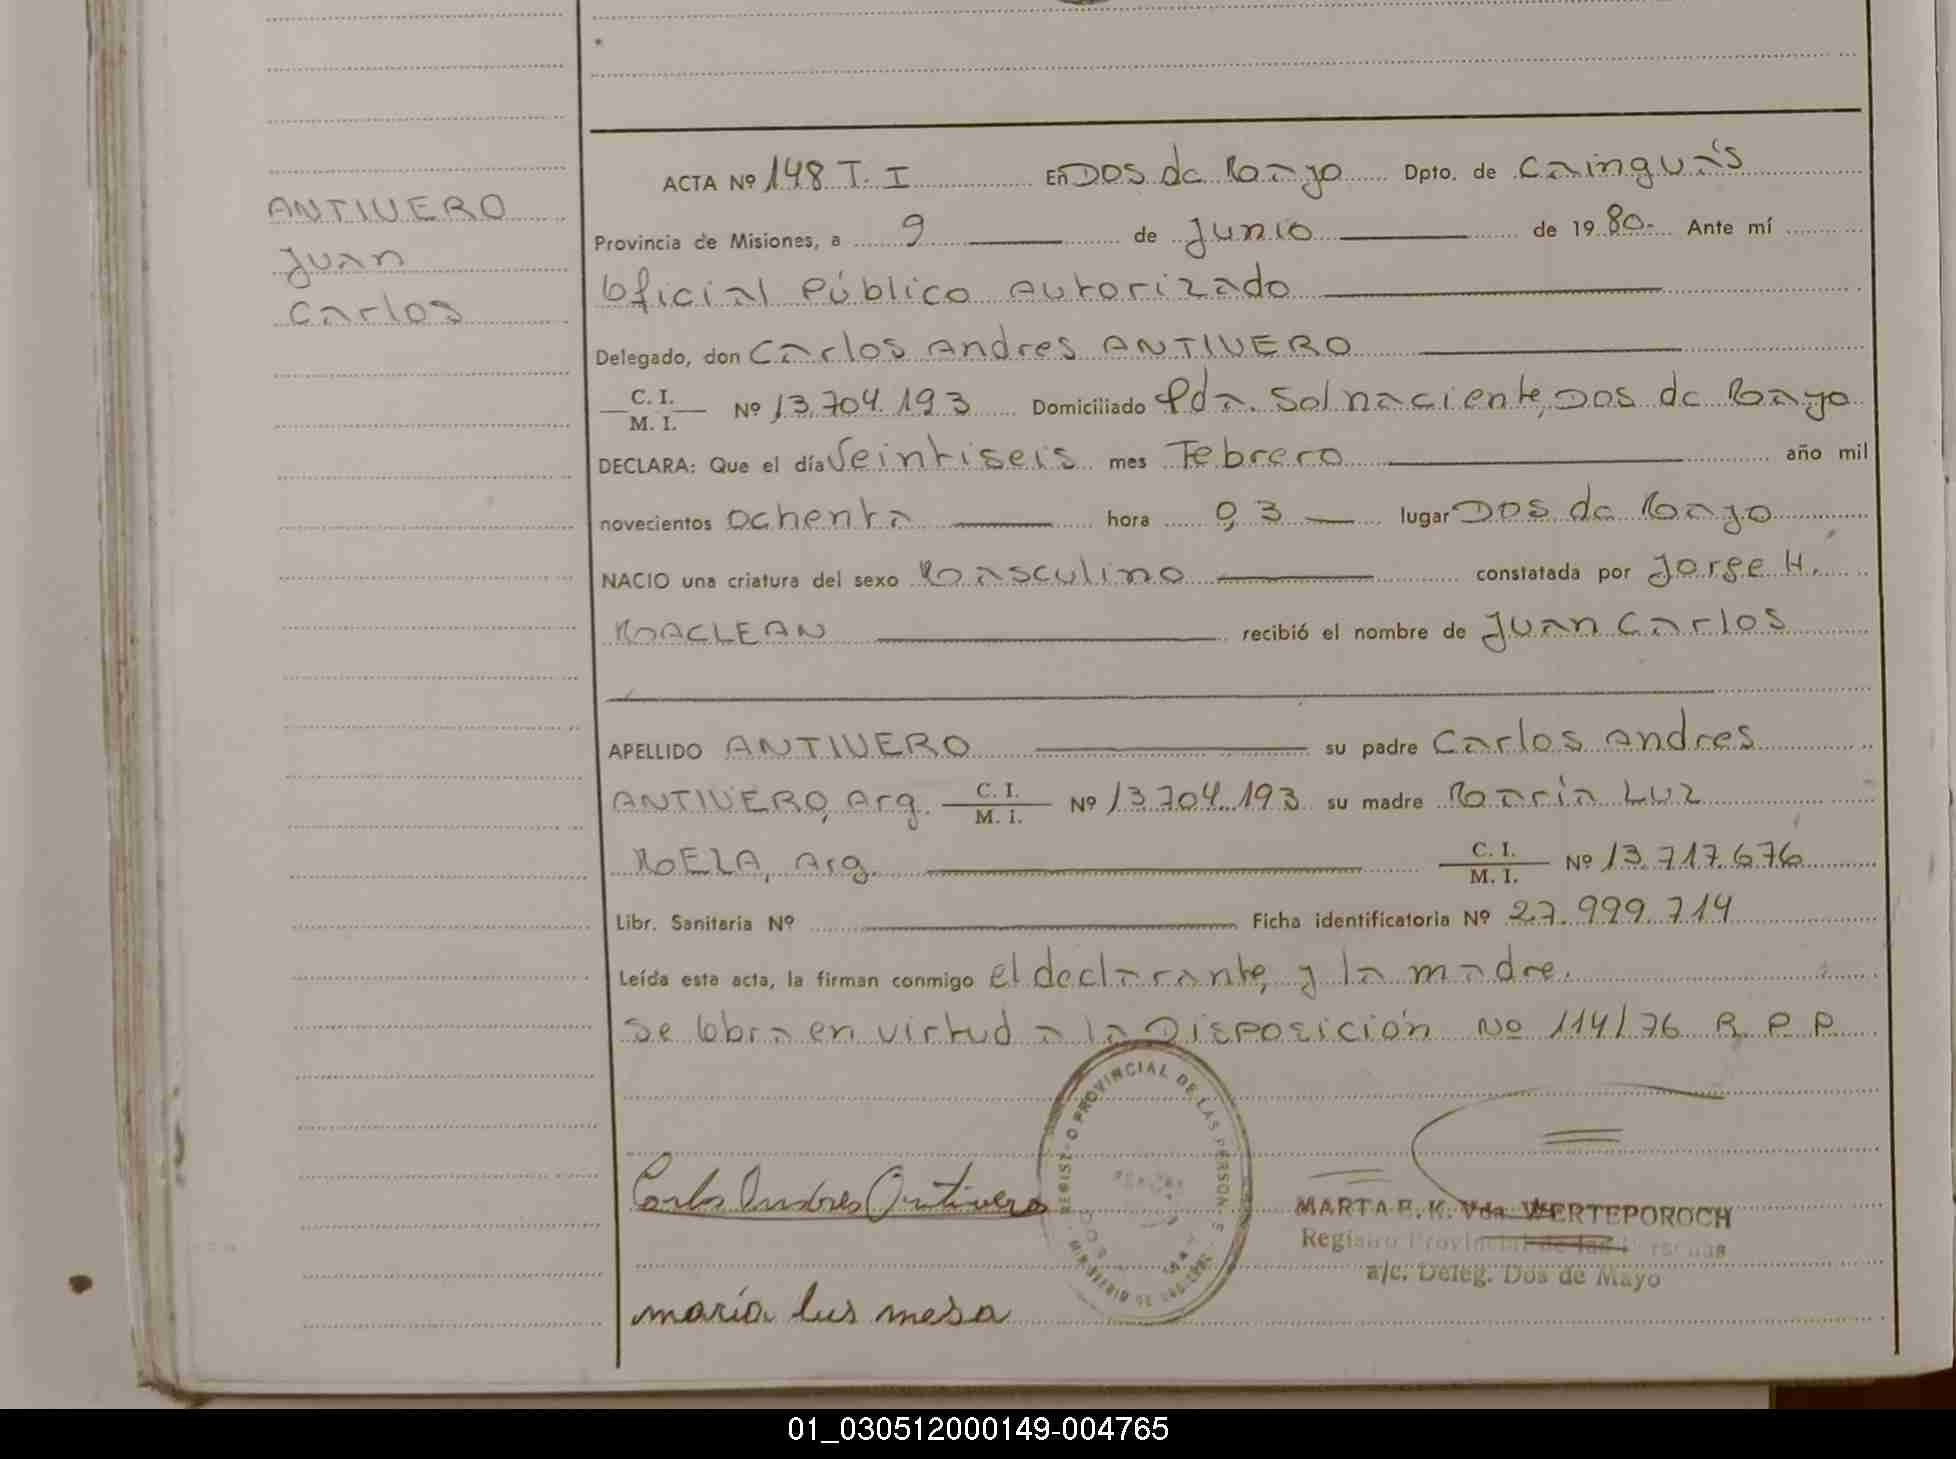 ANTIVERO
Juan
Carlos
ACTA Nº 148 T. I En Dos de Mayo Dpto. de Cainguás
Provincia de Misiones, a 9 de Junio de 1980.- Ante mí
Oficial Público Autorizado
Delegado, don Carlos Andres ANTIVERO
C. I.
M. I. Nº 13.704.193 Domiciliado Pda. Sol naciente, Dos de Mayo
DECLARA: Que el día Veintiseis mes Febrero año mil
novecientos Ochenta hora 0,3 lugar Dos de Mayo
NACIO una criatura del sexo Masculino constatada por Jorge H.
MACLEAN recibió el nombre de Juan Carlos
APELLIDO ANTIVERO su padre Carlos Andres
ANTIVERO, Arg. C. I. M. I. Nº 13.704.193 su madre María Luz
MEZA, Arg. C. I. M. I. Nº 13.717.676
Libr. Sanitaria Nº Ficha identificatoria Nº 27.999.714
Leída esta acta, la firman conmigo el declarante, y la madre.
Se labra en virtud a la Disposición Nº 114/76 R. P. P.
PROVINCIAL DE LAS PERSON
Carlos Andres Antivero
MARTA E. K. Vda. WERTEPOROCH
Registro Provincial de las Personas
a/c. Deleg. Dos de Mayo
maría lus mesa
01_030512000149-004765